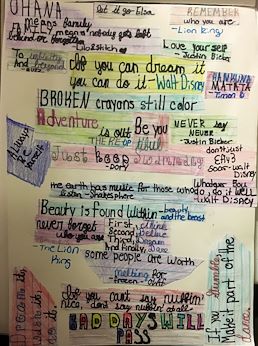 OHANA
means family
FAMILY means nobody gets left
behind or forgotten
- Lilo & Stitch
Let it go - Elsa
REMEMBER
who you are
- Lion King
Love yourself
- Justin Bieber
To infinity
And beyond
If you can dream it
you can do it - Walt Disney
HAKUNA
MATATA
Timon
BROKEN crayons still color
Adventure
is out
THERE
UP
Be you
NEVER SAY
NEVER
- Justin Bieber
Always
Just KEEP Swimming
- Dory
don't just
Soar - Walt
Disney
the earth has music for those who
listen - Shakespeare
Whatever you
do, do it well
- Walt Disney
Beauty is found within
- beauty
and the beast
never forget
who you are
- The Lion
King
First, think
Second, believe
Third, Dream
And Finally, Dare
some people are worth
melting for
- Frozen - Olaf
If you can't say nothin'
nice, don't say nothin' at all
BAD DAYS WILL
PASS
If you stumble,
Make it part of the
dance